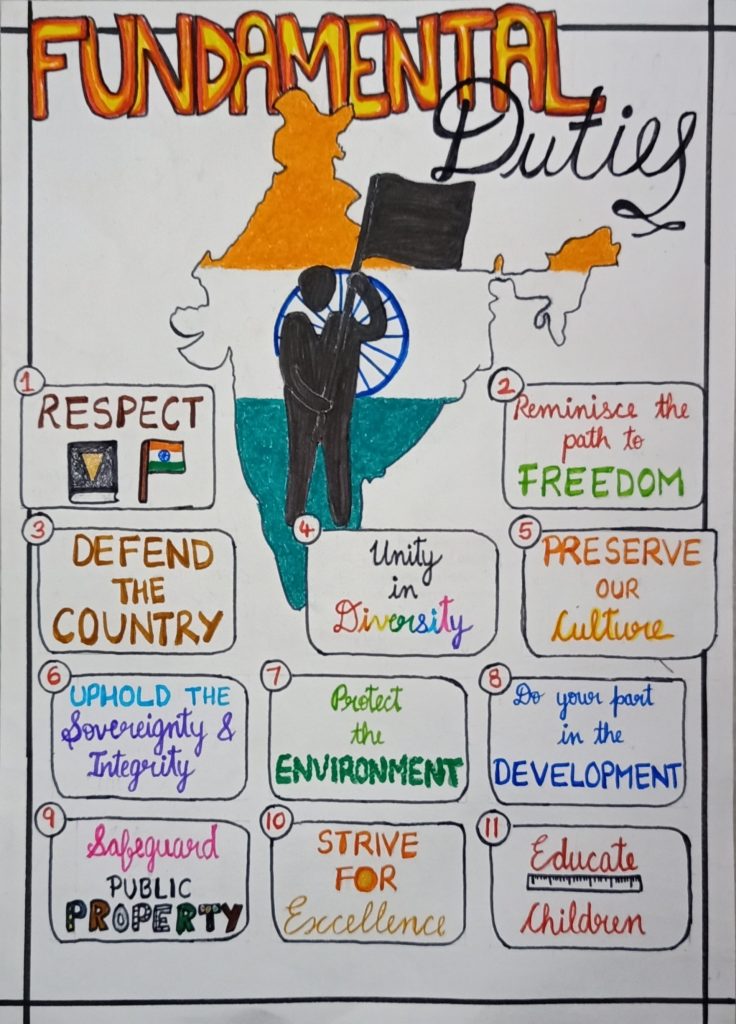 FUNDAMENTAL
Duties
1
RESPECT
2
Reminisce the
path to
FREEDOM
3
DEFEND
THE
COUNTRY
4
Unity
in
Diversity
5
PRESERVE
OUR
Culture
6
UPHOLD THE
Sovereignty &
Integrity
7
Protect
the
ENVIRONMENT
8
Do your part
in the
DEVELOPMENT
9
Safeguard
PUBLIC
PROPERTY
10
STRIVE
FOR
Excellence
11
Educate
Children